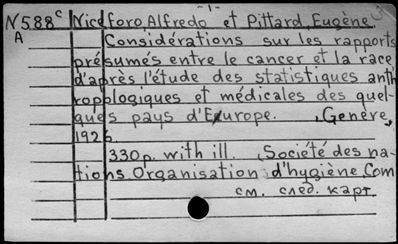 N588ᶜ Niceforo, Alfredo et Pittard, Eugène.
A Considérations sur les rapports
présumés entre le cancer et la race
d'après l'étude des statistiques anth
ropologiques et médicales des quel-
ques pays d'Europe. (Genève,
192
330 p. with ill. (Société des na-
tions. Organisation d'hygiène. Com
см. след. карт.